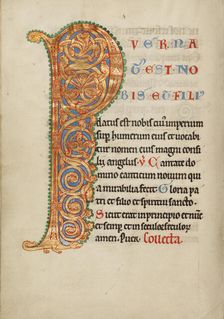 P UER NA
T' EST NO
BIS ET FILI'
Datus est nobis cui' imperium
sup' humerum eius et vocabi
tur nomen eius magni consi
lij angelus. V Cantate do
mino canticum novum qui
a mirabilia fecit. Gloria pa
tri et filio et spiritui sancto.
Sicut erat in principio et nunc
et semp' et in secula seculorum
amen. Puer Collecta.